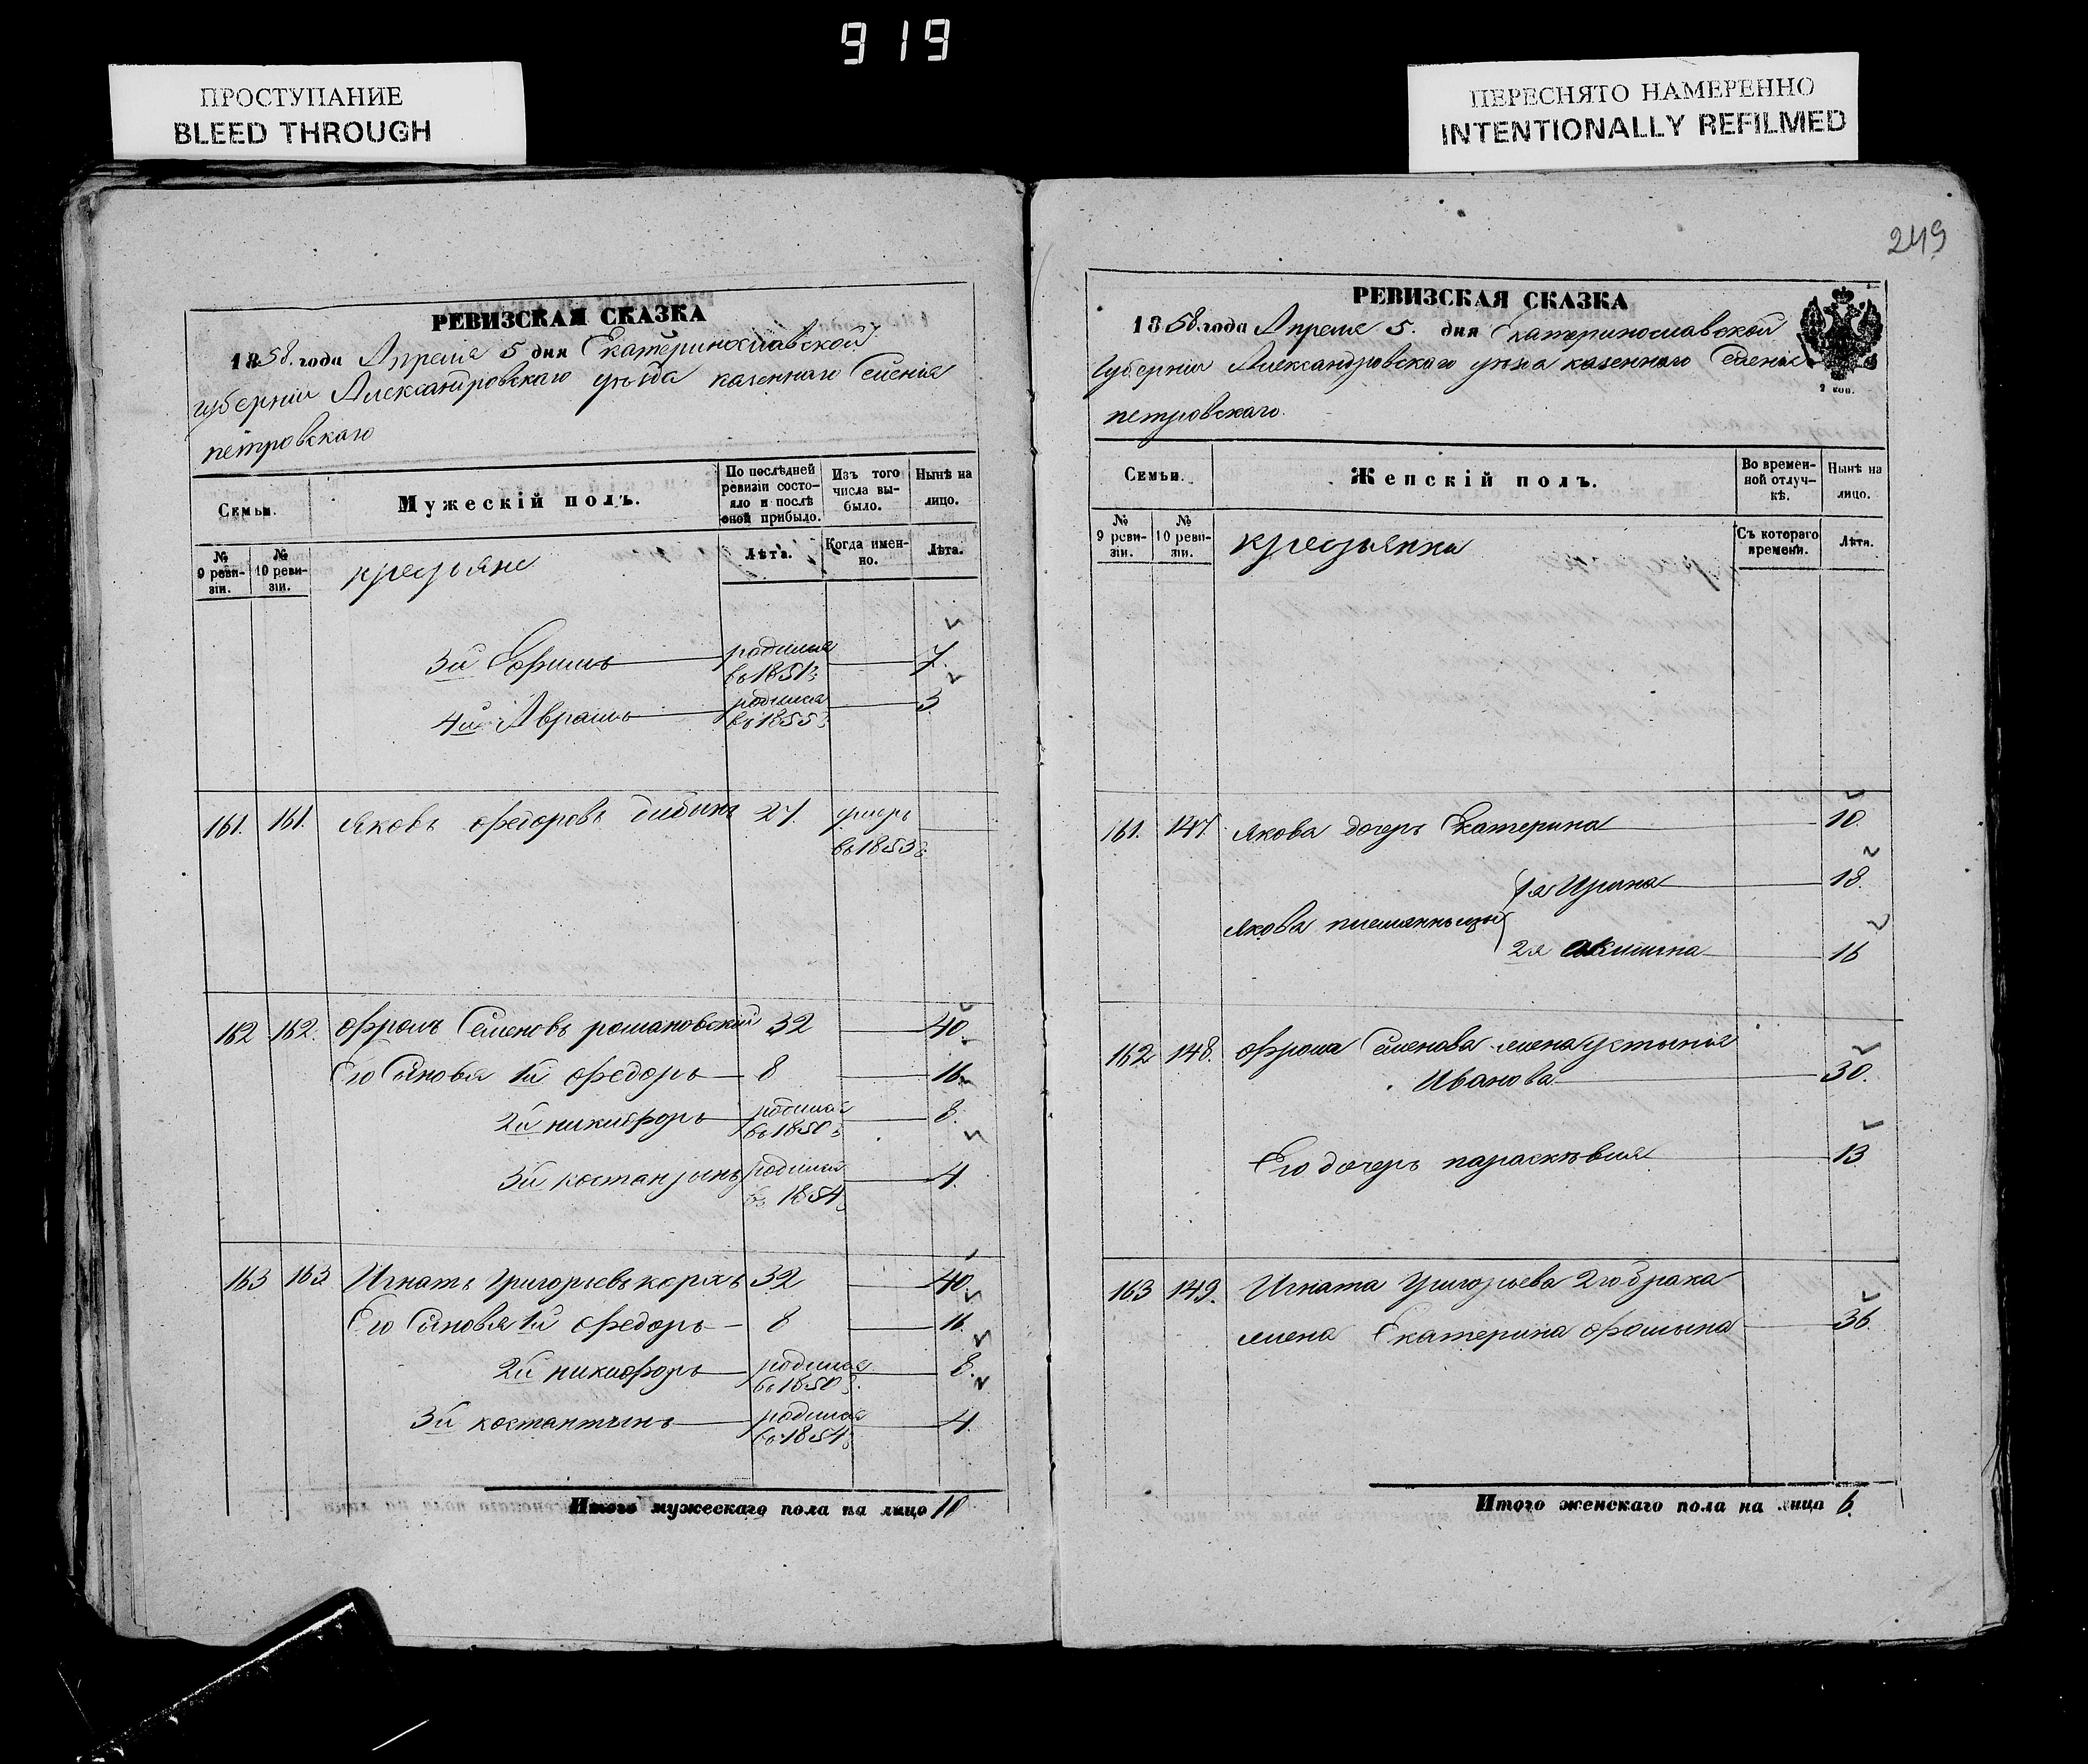 919
ПРОСТУПАНИЕ
BLEED THROUGH
ПЕРЕСНЯТО НАМЕРЕННО
INTENTIONALLY REFILMED
249
РЕВИЗСКАЯ СКАЗКА
1858 года Апреля 5 дня Екатеринославской
губерніи Александровского уезда казенного Селенія
петровскаго
Семьи.
Мужескій полъ.
По послѣдней ревизіи состояло и послѣ оной прибыло.
Изъ того числа выбыло.
Нынѣ на лицо.
№ 9 ревизіи.
№ 10 ревизіи.
крестьяне
Лѣта.
Когда именно.
Лѣта.
3й Ефимъ родился въ 1851 г 7.
4й Аврамъ родился въ 1855 г 3
161. 161. Яковъ Федоровъ 27 умеръ въ 1853 г
162 162. Фромъ Семеновъ романовский 32 40.
Его Сыновья 1й Федоръ 8 16
2й никифоръ родился въ 1850 г 8.
3й костантынъ родился въ 1854 г 4.
163 163 Игнатъ Григорьевъ коржъ 32 40.
Его Сыновья 1й Федоръ 8 16.
2й никифоръ родился въ 1850 г. 8.
3й костантынъ родился въ 1854 г 4.
Итого мужескаго пола на лицо 10
РЕВИЗСКАЯ СКАЗКА
1858 года Апреля 5. дня Екатеринославской
губерніи Александровскаго уезда казенного Селенія
петровскаго.
Семьи.
Женскій полъ.
Во временной отлучкѣ.
Нынѣ на лицо.
№ 9 ревизіи.
№ 10 ревизіи.
крестьянка
Съ котораго времени.
Лѣта.
161. 147. Якова дочерь Екатерина 10.
1я Ирина 18.
Якова племянницы
2я Акилина 16
162 148. Фрома Семенова жена Устынія
Иванова 30.
Его дочерь параскѣвия 13
163 149. Игната Григорьева 2го брака
жена Екатерина Фомына 36.
Итого женскаго пола на лицо 6.